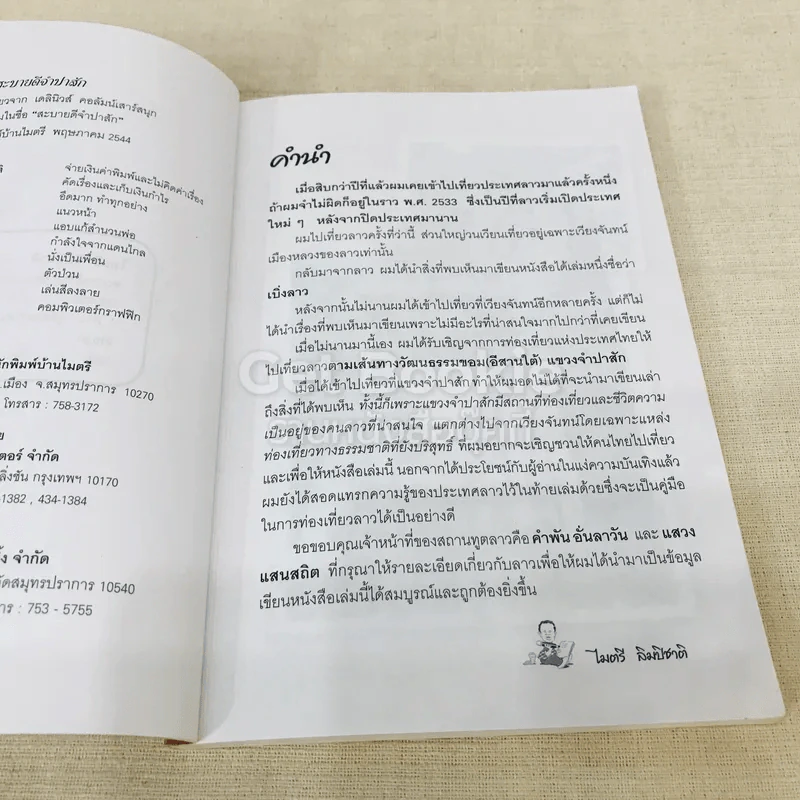 สะบายดีจำปาสัก
เดลินิวส์ คอลัมน์เสาร์สนุก
ในชื่อ "สะบายดีจำปาสัก"
บ้านไมตรี พฤษภาคม 2544
จ่ายเงินค่าพิมพ์และไม่คิดค่าเรื่อง
คัดเรื่องและเก็บเงินกำไร
อืดมาก ทำทุกอย่าง
แนวหน้า
แอบแก้สำนวนพ่อ
กำลังใจจากแดนไกล
นั่งเป็นเพื่อน
ตัวป่วน
เล่นสีลงลาย
คอมพิวเตอร์กราฟฟิก
สำนักพิมพ์บ้านไมตรี
อ.เมือง จ.สมุทรปราการ 10270
โทรสาร : 758-3172
จำกัด
ตลิ่งชัน กรุงเทพฯ 10170
-1382 , 434-1384
จำกัด
จังหวัดสมุทรปราการ 10540
: 753 - 5755
คำนำ
เมื่อสิบกว่าปีที่แล้วผมเคยเข้าไปเที่ยวประเทศลาวมาแล้วครั้งหนึ่ง
ถ้าผมจำไม่ผิดก็อยู่ในราว พ.ศ. 2533 ซึ่งเป็นปีที่ลาวเริ่มเปิดประเทศ
ใหม่ ๆ หลังจากปิดประเทศมานาน
ผมไปเที่ยวลาวครั้งที่ว่านี้ ส่วนใหญ่วนเวียนเที่ยวอยู่เฉพาะเวียงจันทน์
เมืองหลวงของลาวเท่านั้น
กลับมาจากลาว ผมได้นำสิ่งที่พบเห็นมาเขียนหนังสือได้เล่มหนึ่งชื่อว่า
เบิ่งลาว
หลังจากนั้นไม่นานผมได้เข้าไปเที่ยวที่เวียงจันทน์อีกหลายครั้ง แต่ก็ไม่
ได้นำเรื่องที่พบเห็นมาเขียนเพราะไม่มีอะไรที่น่าสนใจมากไปกว่าที่เคยเขียน
เมื่อไม่นานมานี้เอง ผมได้รับเชิญจากการท่องเที่ยวแห่งประเทศไทยให้
ไปเที่ยวลาวตามเส้นทางวัฒนธรรมขอม(อีสานใต้) แขวงจำปาสัก
เมื่อได้เข้าไปเที่ยวที่แขวงจำปาสัก ทำให้ผมอดไม่ได้ที่จะนำมาเขียนเล่า
ถึงสิ่งที่ได้พบเห็น ทั้งนี้ก็เพราะแขวงจำปาสักมีสถานที่ท่องเที่ยวและชีวิตความ
เป็นอยู่ของคนลาวที่น่าสนใจ แตกต่างไปจากเวียงจันทน์โดยเฉพาะแหล่ง
ท่องเที่ยวทางธรรมชาติที่ยังบริสุทธิ์ ที่ผมอยากจะเชิญชวนให้คนไทยไปเที่ยว
และเพื่อให้หนังสือเล่มนี้ นอกจากได้ประโยชน์กับผู้อ่านในแง่ความบันเทิงแล้ว
ผมยังได้สอดแทรกความรู้ของประเทศลาวไว้ในท้ายเล่มด้วยซึ่งจะเป็นคู่มือ
ในการท่องเที่ยวลาวได้เป็นอย่างดี
ขอขอบคุณเจ้าหน้าที่ของสถานทูตลาวคือ คำพัน อั่นลาวัน และ แสวง
แสนสถิต ที่กรุณาให้รายละเอียดเกี่ยวกับลาวเพื่อให้ผมได้นำมาเป็นข้อมูล
เขียนหนังสือเล่มนี้ได้สมบูรณ์และถูกต้องยิ่งขึ้น
ไมตรี ลิมปิชาติ